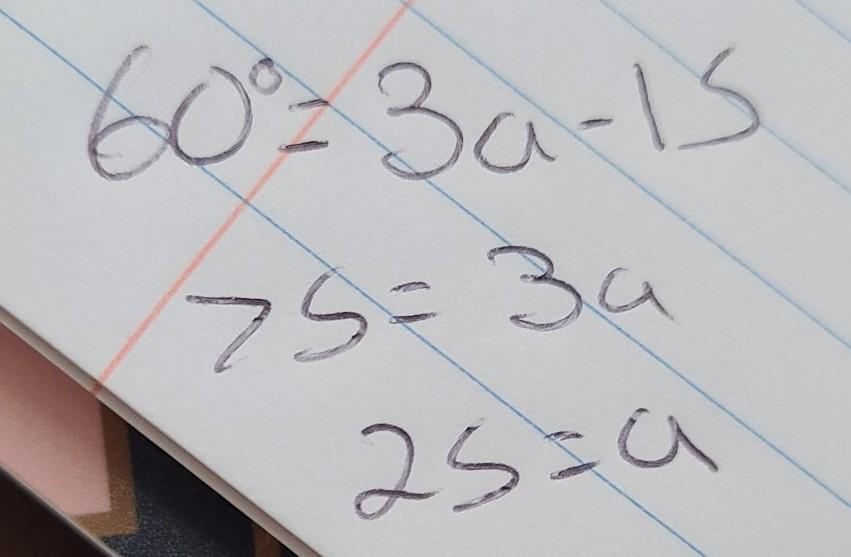 60°=3a-15
75=3a
25=a